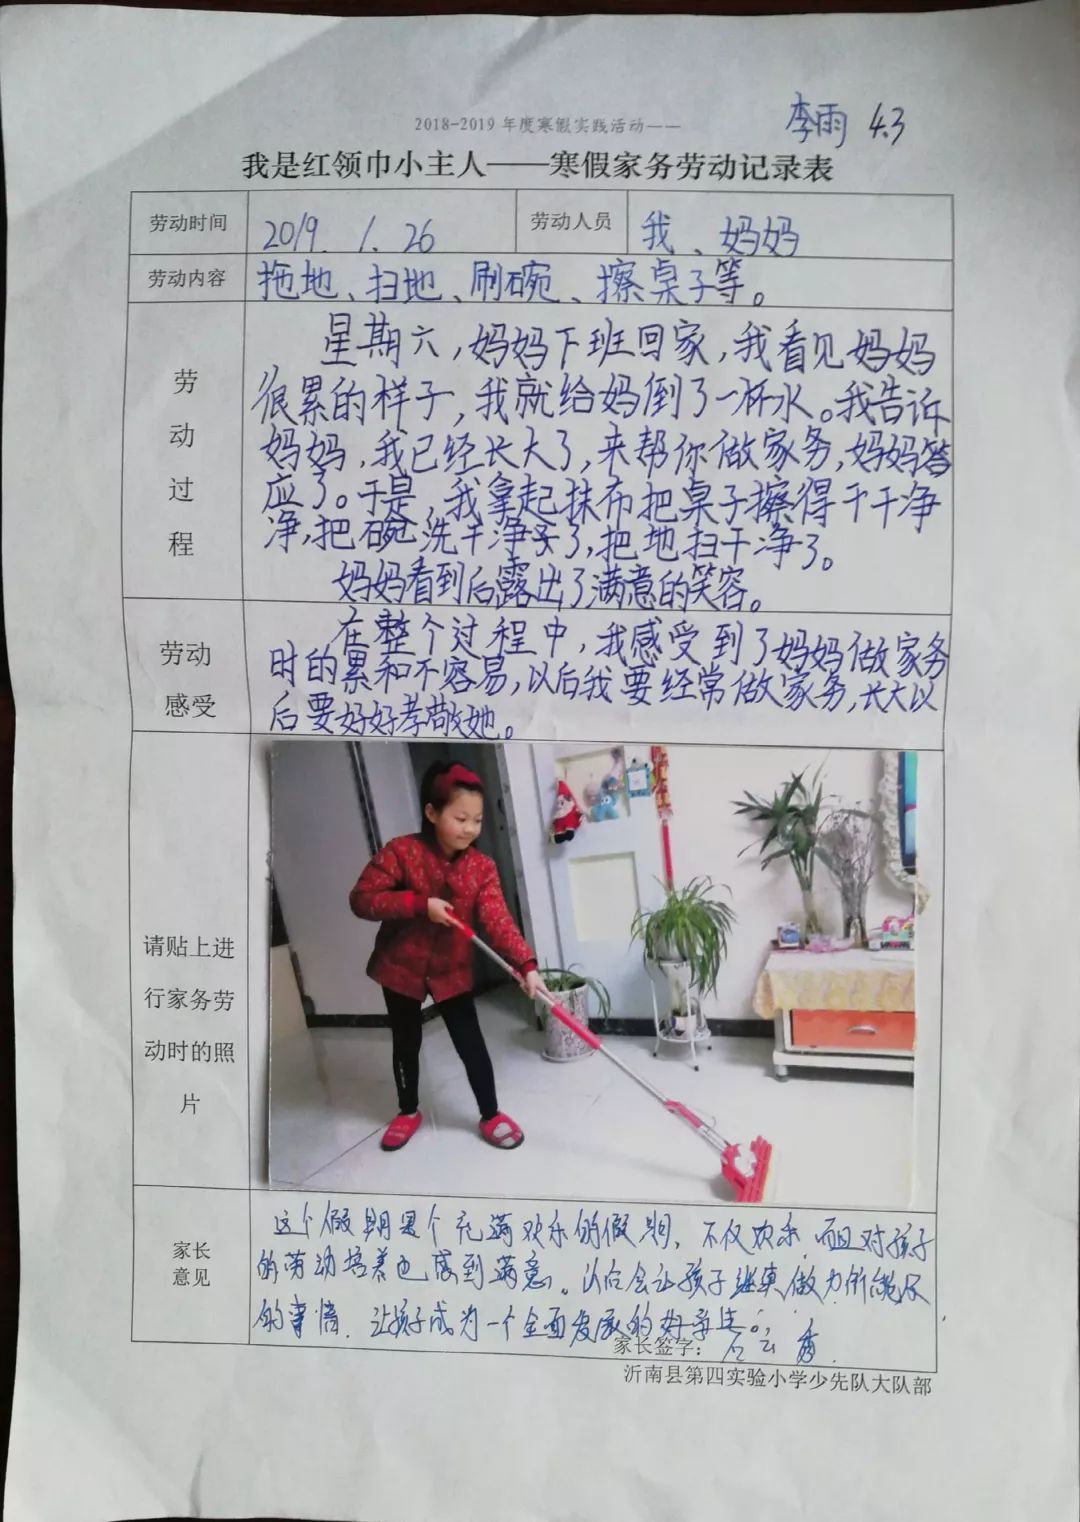 2018-2019 年度寒假实践活动——
李雨 4.3
我是红领巾小主人——寒假家务劳动记录表
劳动时间 2019. 1. 26 劳动人员 我、妈妈
劳动内容 拖地、扫地、刷碗、擦桌子等。
劳动过程
星期六,妈妈下班回家,我看见妈妈
很累的样子,我就给妈倒了一杯水。我告诉
妈妈,我已经长大了,来帮你做家务,妈妈答
应了。于是,我拿起抹布把桌子擦得干干净
净,把碗洗干净了,把地扫干净了。
妈妈看到后露出了满意的笑容。
劳动
感受
在整个过程中,我感受到了妈妈做家务
时的累和不容易,以后我要经常做家务,长大以
后要好好孝敬她。
请贴上进
行家务劳
动时的照
片
家长
意见
这个假期是个充满欢乐的假期,不仅欢乐,而且对孩子
的劳动培养也感到满意。以后会让孩子继续做力所能及
的事情,让孩子成为一个全面发展的好学生。
家长签字:
沂南县第四实验小学少先队大队部